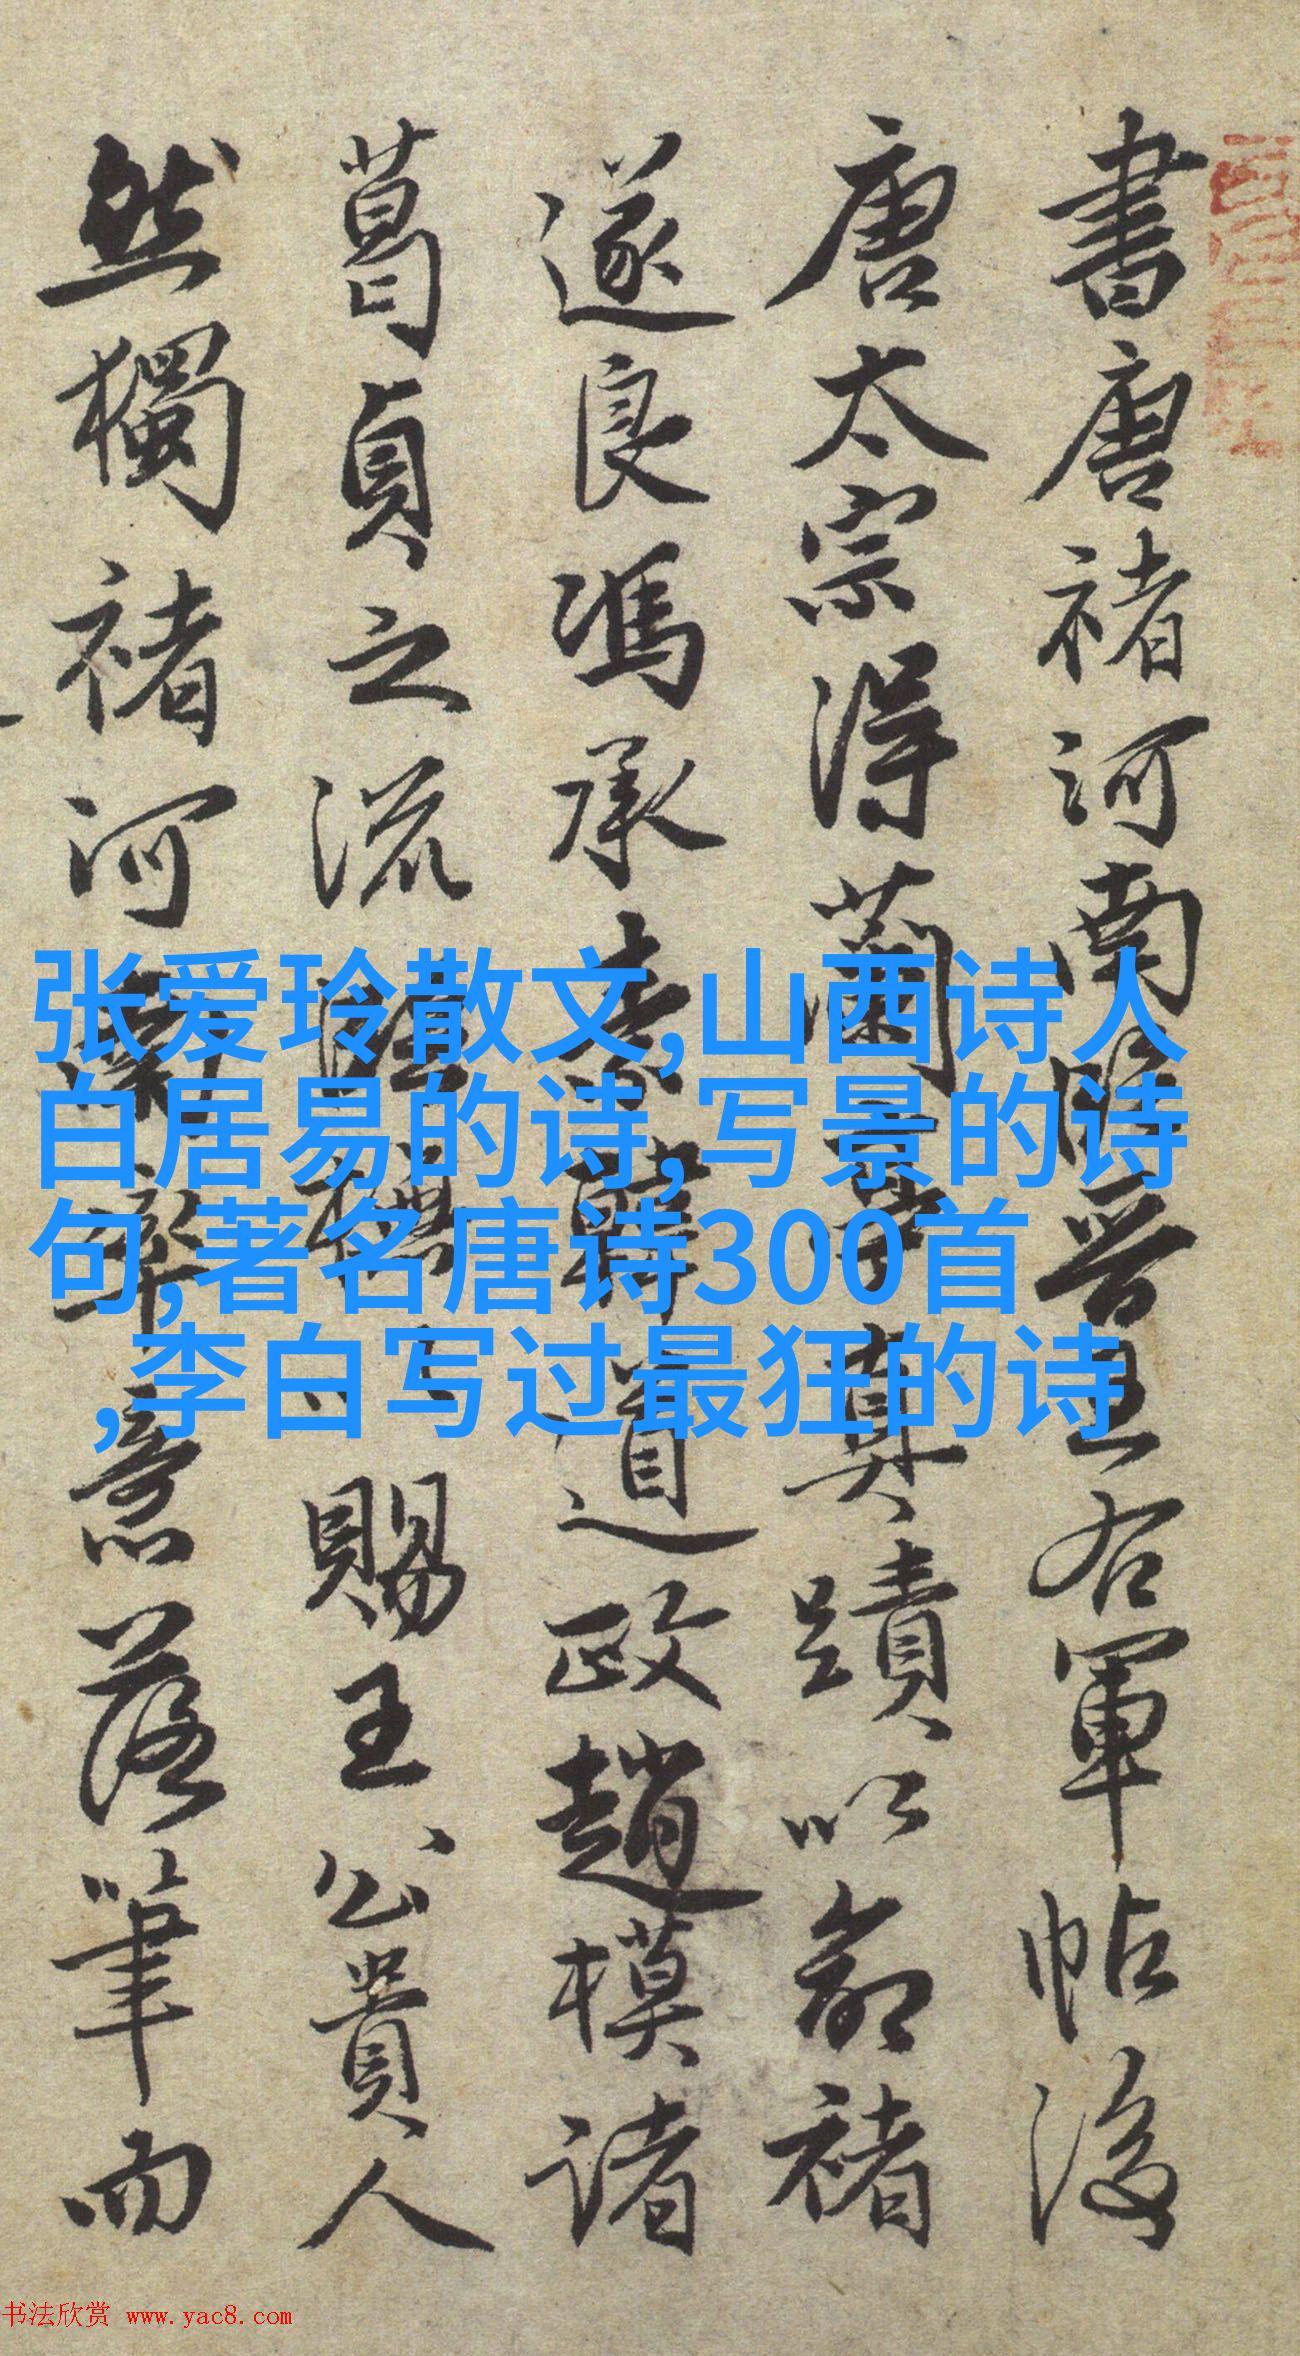 書唐褚河南臨晉王右軍帖後
唐太宗得蘭亭真蹟以命褚
遂良馮承素韓道政趙模諸
葛貞之流
賜王公貴人
然獨褚河南
意落筆而
张爱玲散文,山西诗人
白居易的诗,写景的诗
句,著名唐诗300首
,李白写过最狂的诗
书法欣赏 www.yac8.com